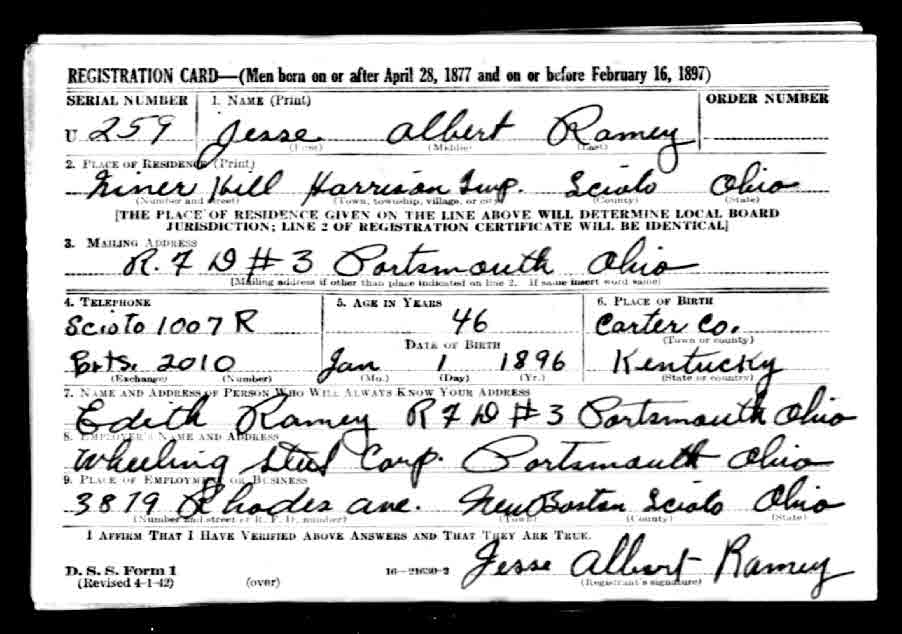 REGISTRATION CARD—(Men born on or after April 28, 1877 and on or before February 16, 1897)
SERIAL NUMBER 1. NAME (Print) ORDER NUMBER
U 259 Jesse Albert Ramey
(First) (Middle) (Last)
2. PLACE OF RESIDENCE (Print)
Hill Harrison Twp. Scioto Ohio
(Number and street) (Town, township, village, or city) (County) (State)
[THE PLACE OF RESIDENCE GIVEN ON THE LINE ABOVE WILL DETERMINE LOCAL BOARD
JURISDICTION; LINE 2 OF REGISTRATION CERTIFICATE WILL BE IDENTICAL]
3. MAILING ADDRESS
R. F D # 3 Portsmouth Ohio
[Mailing address if other than place indicated on line 2. If same insert word same]
4. TELEPHONE 5. AGE IN YEARS 6. PLACE OF BIRTH
Scioto 1007 R 46 Carter Co.
DATE OF BIRTH (Town or county)
Ports. 2010 Jan 1 1896 Kentucky
(Exchange) (Number) (Mo.) (Day) (Yr.) (State or country)
7. NAME AND ADDRESS OF PERSON WHO WILL ALWAYS KNOW YOUR ADDRESS
Edith Ramey R F D # 3 Portsmouth Ohio
8. EMPLOYER'S NAME AND ADDRESS
Wheeling Steel Corp. Portsmouth Ohio
9. PLACE OF EMPLOYMENT OR BUSINESS
3819 Rhodes ave. New Boston Scioto Ohio
(Number and street or R. F. D. number) (Town) (County) (State)
I AFFIRM THAT I HAVE VERIFIED ABOVE ANSWERS AND THAT THEY ARE TRUE.
D. S. S. Form 1
(Revised 4-1-42) (over) 16—21630-2 Jesse Albert Ramey
(Registrant's signature)